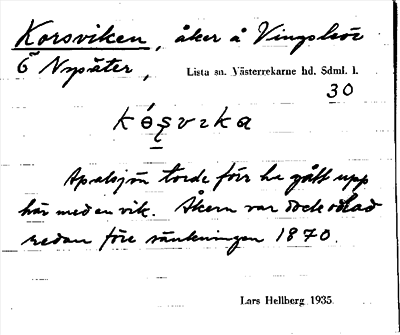 Korsviken, åker å Vingelsör
Ö Nysäter, Lista sn. Västerrekarne hd. Sdml. l.
30
kɵ́ṣvıka
Apalsjön torde förr ha gått upp
här med en vik. Åkern var dock odlad
redan före sänkningen 1870.
Lars Hellberg 1935